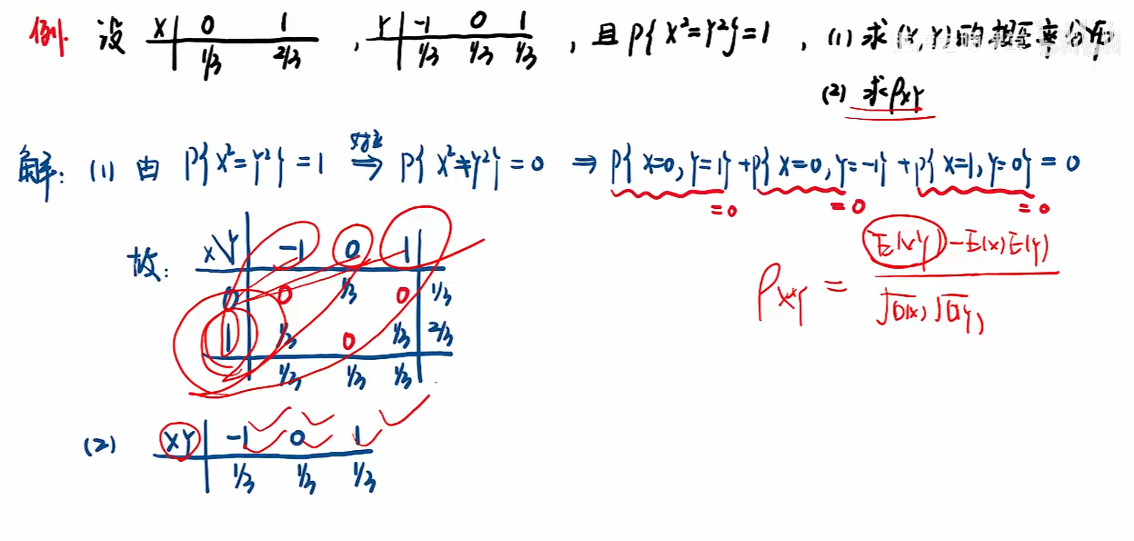 例. 设 X | 0 1 , Y | -1 0 1 , 且 P{X²=Y²}=1 , (1) 求(X,Y)的概率分布
1/3 2/3 1/3 1/3 1/3
(2) 求ρXY
解: (1) 由 P{X²=Y²}=1 ⇒ P{X²≠Y²}=0 ⇒ P{X=0,Y=1}+P{X=0,Y=-1}+P{X=1,Y=0}=0
=0 =0 =0
故: X\Y -1 0 1
0 0 1/3 0 1/3
1 1/3 0 1/3 2/3
1/3 1/3 1/3
ρXY = E(XY)-E(X)E(Y)
√D(X) √D(Y)
(2) XY | -1 0 1
1/3 1/3 1/3